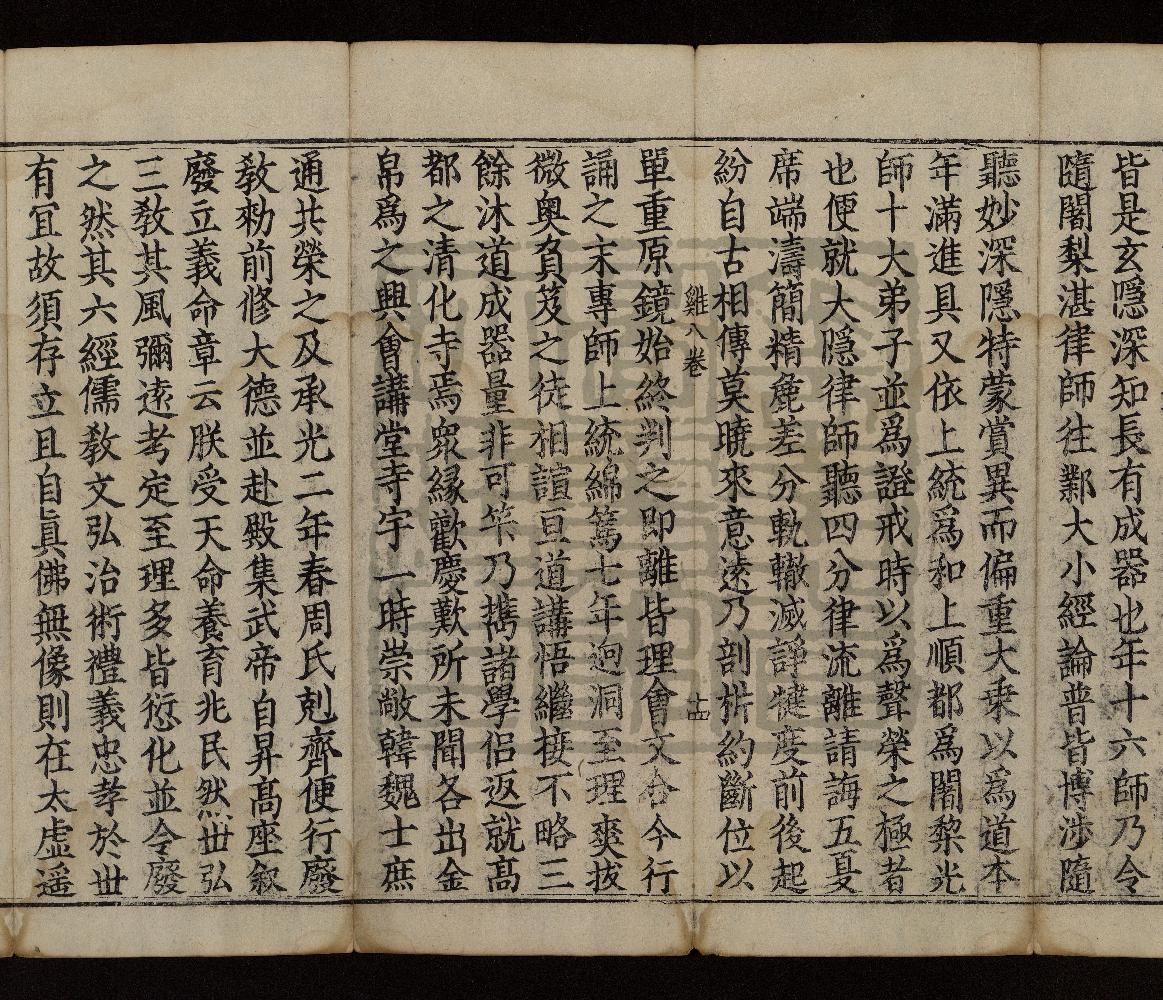 皆是玄隱深知長有成器也年十六師乃令
隨闍梨湛律師往鄴大小經論普皆博涉隨
聽妙深隱特蒙賞異而偏重大乗以爲道本
年滿進具又依上統爲和上順都爲闍棃光
師十大弟子並爲證戒時以爲聲榮之極者
也便就大隱律師聽四分律流離請誨五夏
席端濤簡精麁差分軌轍滅諍犍度前後起
紛自古相傳莫曉來意遠乃剖㭊約斷位以
雞八卷 十四
單重原鏡始終判之即離皆理會文合今行
誦之末專師上統綿篤七年迥洞至理爽拔
微奥負笈之徒相諠亘道講悟繼接不略三
餘沐道成器量非可筭乃擕諸學侶返就髙
都之清化寺焉衆縁歡慶歎所未聞各出金
帛爲之興會講堂寺宇一時崇敞韓魏士庶
通共榮之及承光二年春周氏剋齊便行廢
教勑前修大德並赴殿集武帝自昇髙座叙
廢立義命章云朕受天命養育兆民然世弘
三教其風彌逺考定至理多皆愆化並令廢
之然其六經儒教文弘治術禮義忠孝於世
有冝故須存立且自眞佛無像則在太虚遥